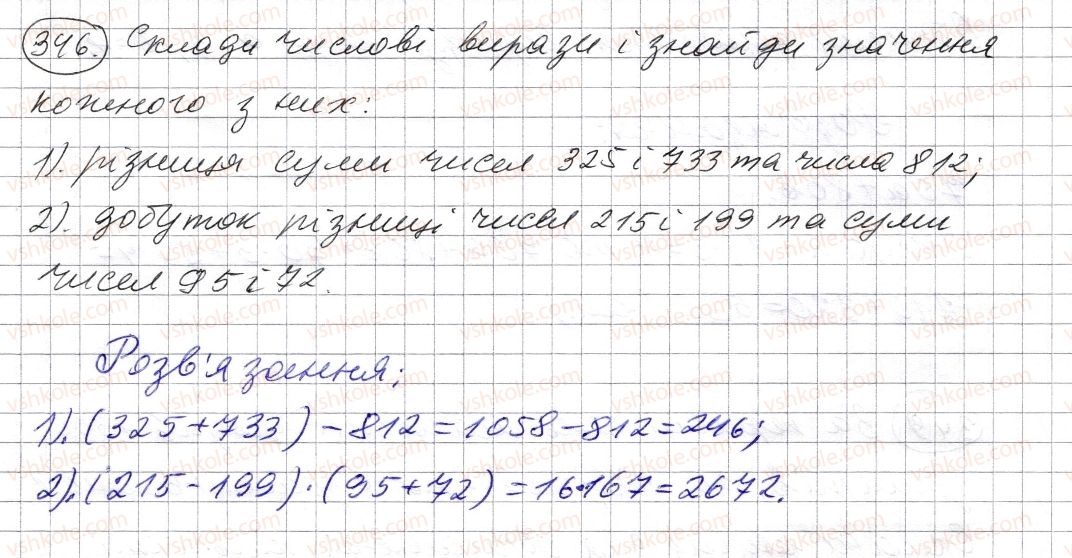 346. Склади числові вирази і знайди значення
кожного з них:
1). різниця суми чисел 325 і 733 та числа 812;
2). добуток різниці чисел 215 і 199 та суми
чисел 95 і 72.
Розв'язання;
1). (325+733)-812=1058-812=246;
2). (215-199)·(95+72)=16·167=2672.